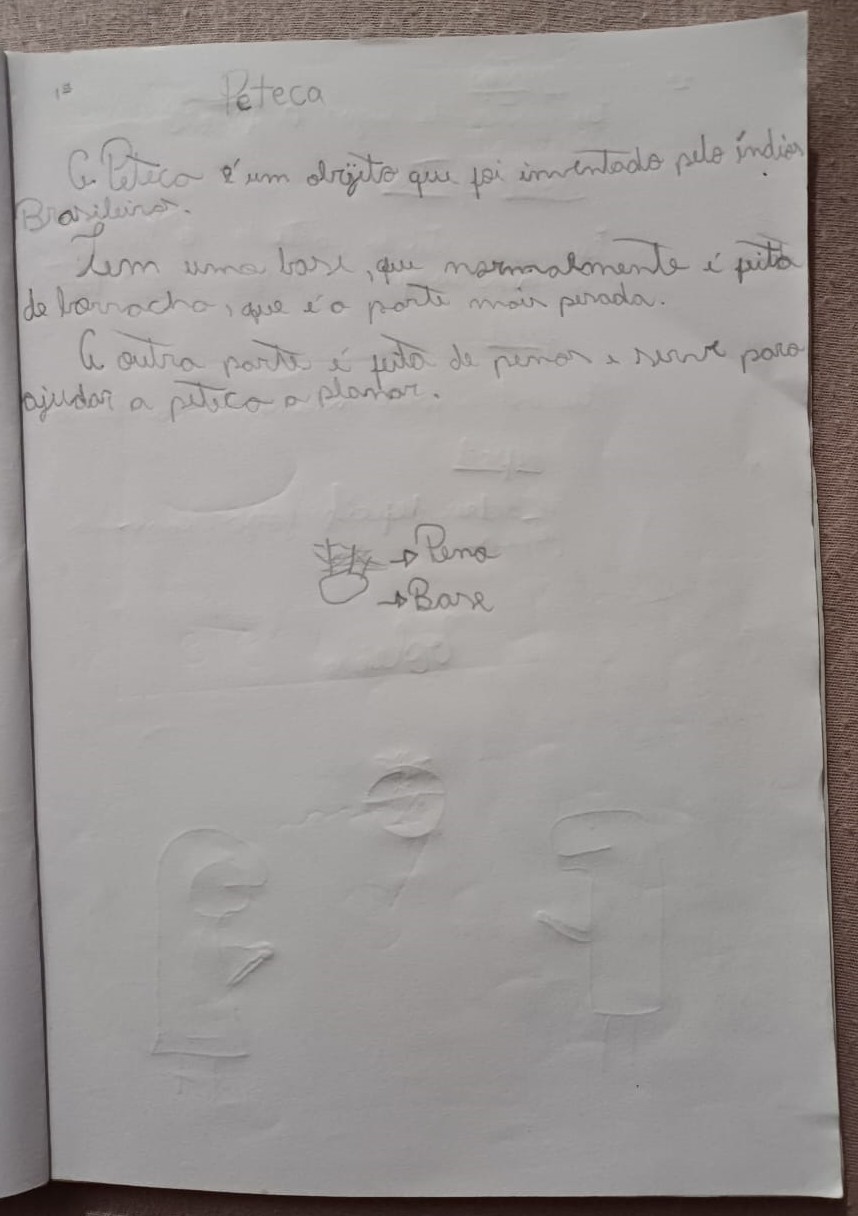 1ª
Peteca
A Peteca é um objeto que foi inventado pelo índios
Brasileiros.
Tem uma base, que normalmente é feita
de borracha, que é a parte mais pesada.
A outra parte é feita de penas e serve para
ajudar a peteca a planar.
→ Pena
→ Base